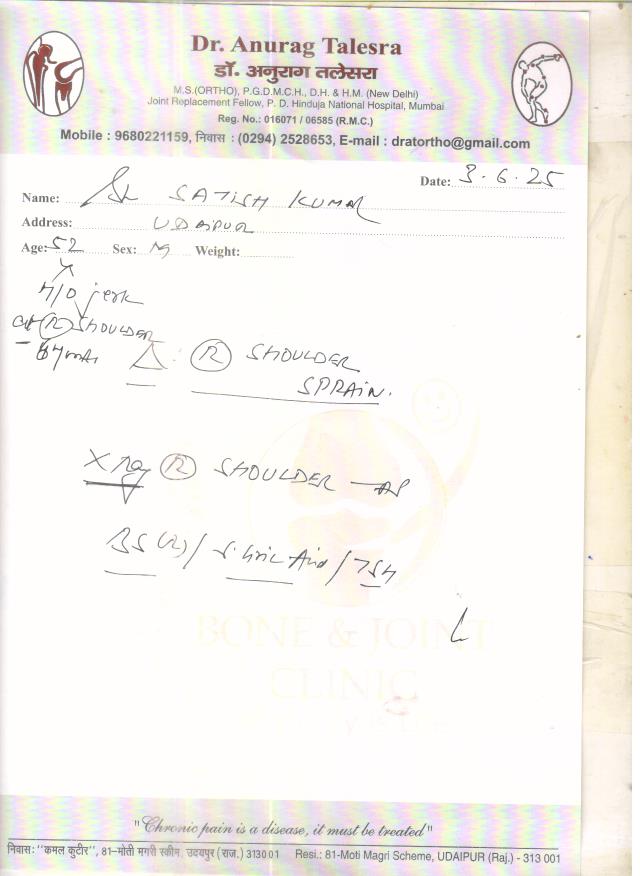 Dr. Anurag Talesra
डॉ. अनुराग तलेसरा
M.S.(ORTHO), P.G.D.M.C.H., D.H. & H.M. (New Delhi)
Joint Replacement Fellow, P. D. Hinduja National Hospital, Mumbai
Reg. No.: 016071 / 06585 (R.M.C.)
Mobile : 9680221159, निवास : (0294) 2528653, E-mail : dratortho@gmail.com
Date: 3.6.25
Name: SATISH KUMAR
Address: UDAIPUR
Age: 52 Sex: M Weight:
H/O jerk
(R) SHOULDER
Δ: (R) SHOULDER
SPRAIN.
X ray (R) SHOULDER — AP
BS (R) / S. Uric Acid / TSH
BONE & JOINT
CLINIC
"Chronic pain is a disease, it must be treated"
निवास: "कमल कुटीर", 81-मोती मगरी स्कीम, उदयपुर (राज.) 313001 Resi.: 81-Moti Magri Scheme, UDAIPUR (Raj.) - 313 001